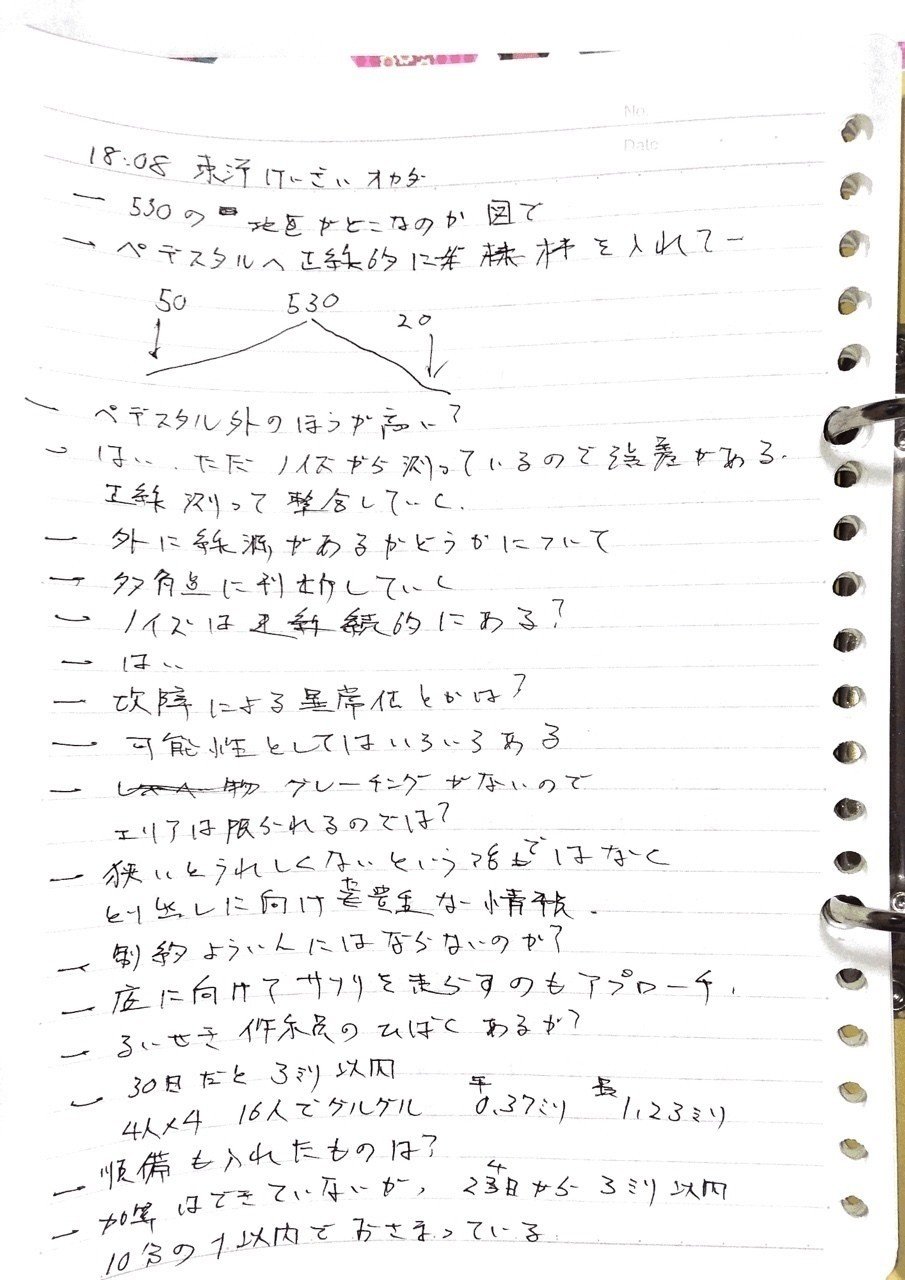 No.
Date
18:08 東洋けいざい オカダ
530の 地区がどこなのか 図で
ペデスタルへ 正線的に 機材を入れてー
50 530 20
ペデスタル外のほうが高い?
はい、ただ ノイズから測っているので 誤差がある.
正線 測って 整合していく.
外に線源があるかどうかについて
多角点に判断していく
ノイズは 連続的にある?
はい
故障による異常値とかは?
可能性としてはいろいろある
グレーチングがないので
エリアは限られるのでは?
狭いとうれしくないという ではなく
とり出しに向け 豊重な情報.
制約よういんにはならないのか?
底に向けてサソリを走らすのもアプローチ.
るいせき 作業員のひばくあるが?
30日だと 3ミリ以内
4人×4 16人でグルグル 平 0.37ミリ 最 1.23ミリ
順備も入れたものは?
加算はできていないが, 24日から 3ミリ以内
10分の1以内でおさまっている